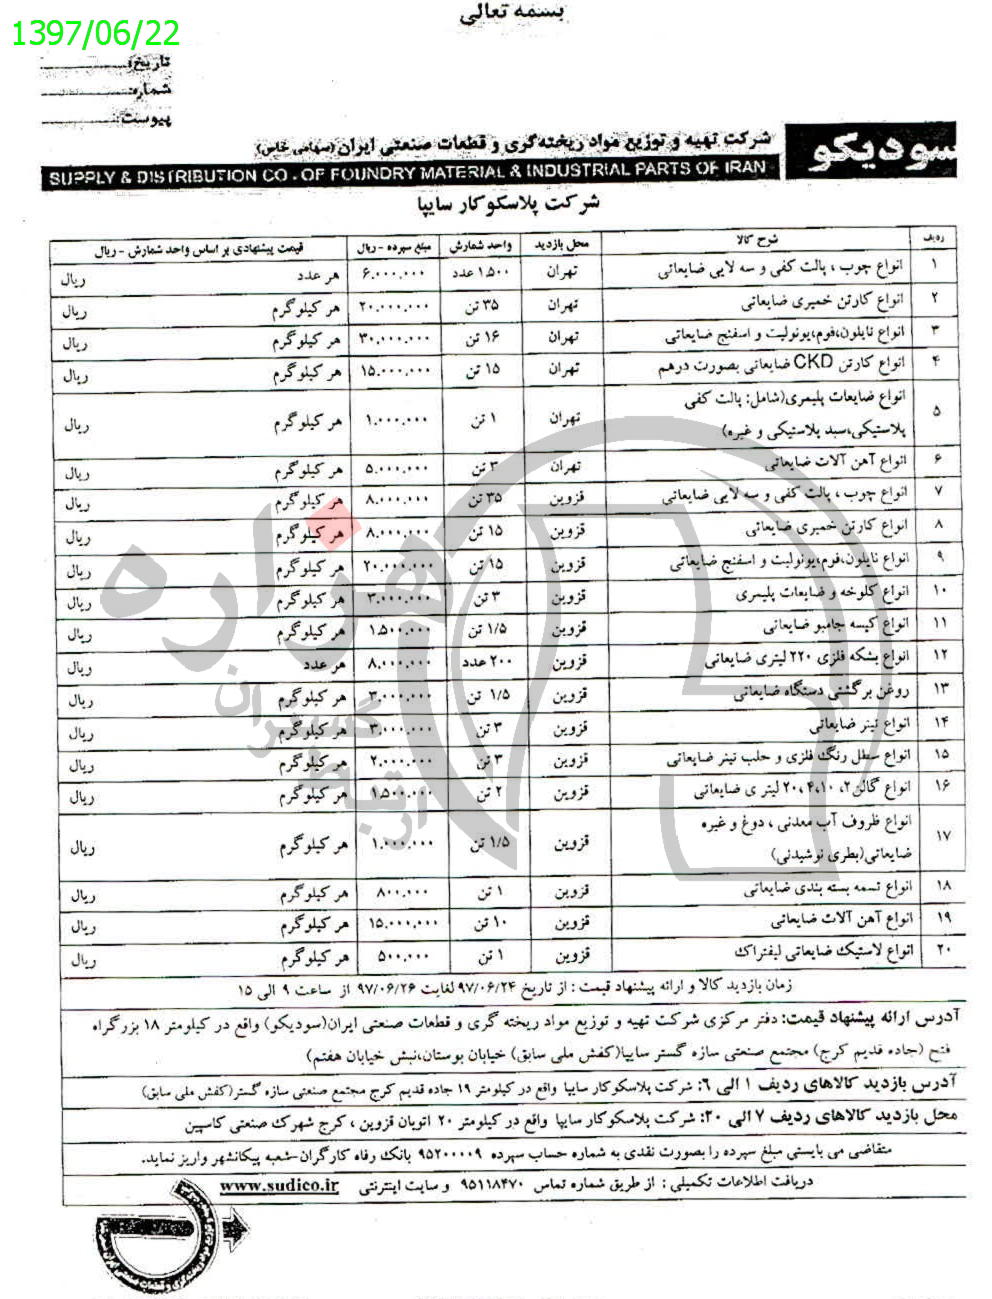 بسمه تعالی
1397/06/22
تاریخ:
شماره:
پیوست:
سودیکو
شرکت تهیه و توزیع مواد ریخته‌گری و قطعات صنعتی ایران (سهامی خاص)
SUPPLY & DISTRIBUTION CO . OF FOUNDRY MATERIAL & INDUSTRIAL PARTS OF IRAN
شرکت پلاسکوکار سایپا
ردیف شرح کالا محل بازدید واحد شمارش مبلغ سپرده - ریال قیمت پیشنهادی بر اساس واحد شمارش - ریال
۱ انواع چوب ، پالت کفی و سه لایی ضایعاتی تهران ۱.۵۰۰ عدد ۶.۰۰۰.۰۰۰ هر عدد ریال
۲ انواع کارتن خمیری ضایعاتی تهران ۳۵ تن ۲۰.۰۰۰.۰۰۰ هر کیلوگرم ریال
۳ انواع نایلون،فوم،یونولیت و اسفنج ضایعاتی تهران ۱۶ تن ۳۰.۰۰۰.۰۰۰ هر کیلوگرم ریال
۴ انواع کارتن CKD ضایعاتی بصورت درهم تهران ۱۵ تن ۱۵.۰۰۰.۰۰۰ هر کیلوگرم ریال
۵ انواع ضایعات پلیمری(شامل: پالت کفی
پلاستیکی،سبد پلاستیکی و غیره) تهران ۱ تن ۱.۰۰۰.۰۰۰ هر کیلوگرم ریال
۶ انواع آهن آلات ضایعاتی تهران ۳ تن ۵.۰۰۰.۰۰۰ هر کیلوگرم ریال
۷ انواع چوب ، پالت کفی و سه لایی ضایعاتی قزوین ۳۵ تن ۸.۰۰۰.۰۰۰ هر کیلوگرم ریال
۸ انواع کارتن خمیری ضایعاتی قزوین ۱۵ تن ۸.۰۰۰.۰۰۰ هر کیلوگرم ریال
۹ انواع نایلون،فوم،یونولیت و اسفنج ضایعاتی قزوین ۱۵ تن ۲۰.۰۰۰.۰۰۰ هر کیلوگرم ریال
۱۰ انواع کلوخه و ضایعات پلیمری قزوین ۳ تن ۳.۰۰۰.۰۰۰ هر کیلوگرم ریال
۱۱ انواع کیسه جامبو ضایعاتی قزوین ۱/۵ تن ۱.۵۰۰.۰۰۰ هر کیلوگرم ریال
۱۲ انواع بشکه فلزی ۲۲۰ لیتری ضایعاتی قزوین ۲۰۰ عدد ۸.۰۰۰.۰۰۰ هر عدد ریال
۱۳ روغن برگشتی دستگاه ضایعاتی قزوین ۱/۵ تن ۳.۰۰۰.۰۰۰ هر کیلوگرم ریال
۱۴ انواع تینر ضایعاتی قزوین ۳ تن ۳.۰۰۰.۰۰۰ هر کیلوگرم ریال
۱۵ انواع سطل رنگ فلزی و حلب تینر ضایعاتی قزوین ۳ تن ۲.۰۰۰.۰۰۰ هر کیلوگرم ریال
۱۶ انواع گالن ۲، ۴،۱۰، ۲۰ لیتر ی ضایعاتی قزوین ۲ تن ۱.۵۰۰.۰۰۰ هر کیلوگرم ریال
۱۷ انواع ظروف آب معدنی ، دوغ و غیره
ضایعاتی(بطری نوشیدنی) قزوین ۱/۵ تن ۱.۰۰۰.۰۰۰ هر کیلوگرم ریال
۱۸ انواع تسمه بسته بندی ضایعاتی قزوین ۱ تن ۸۰۰.۰۰۰ هر کیلوگرم ریال
۱۹ انواع آهن آلات ضایعاتی قزوین ۱۰ تن ۱۵.۰۰۰.۰۰۰ هر کیلوگرم ریال
۲۰ انواع لاستیک ضایعاتی لیفتراک قزوین ۱ تن ۵۰۰.۰۰۰ هر کیلوگرم ریال
زمان بازدید کالا و ارائه پیشنهاد قیمت : از تاریخ ۹۷/۰۶/۲۴ لغایت ۹۷/۰۶/۲۶ از ساعت ۹ الی ۱۵
آدرس ارائه پیشنهاد قیمت: دفتر مرکزی شرکت تهیه و توزیع مواد ریخته گری و قطعات صنعتی ایران(سودیکو) واقع در کیلومتر ۱۸ بزرگراه
فتح (جاده قدیم کرج) مجتمع صنعتی سازه گستر سایپا(کفش ملی سابق) خیابان بوستان،نبش خیابان هفتم)
آدرس بازدید کالاهای ردیف ۱ الی ۶: شرکت پلاسکوکار سایپا واقع در کیلومتر ۱۹ جاده قدیم کرج مجتمع صنعتی سازه گستر(کفش ملی سابق)
محل بازدید کالاهای ردیف ۷ الی ۲۰: شرکت پلاسکوکار سایپا واقع در کیلومتر ۲۰ اتوبان قزوین ، کرج شهرک صنعتی کاسپین
متقاضی می بایستی مبلغ سپرده را بصورت نقدی به شماره حساب سپرده ۹۵۲۰۰۰۰۹ بانک رفاه کارگران-شعبه پیکانشهر واریز نماید.
دریافت اطلاعات تکمیلی : از طریق شماره تماس ۹۵۱۱۸۴۷۰ و سایت اینترنتی www.sudico.ir
هزاره